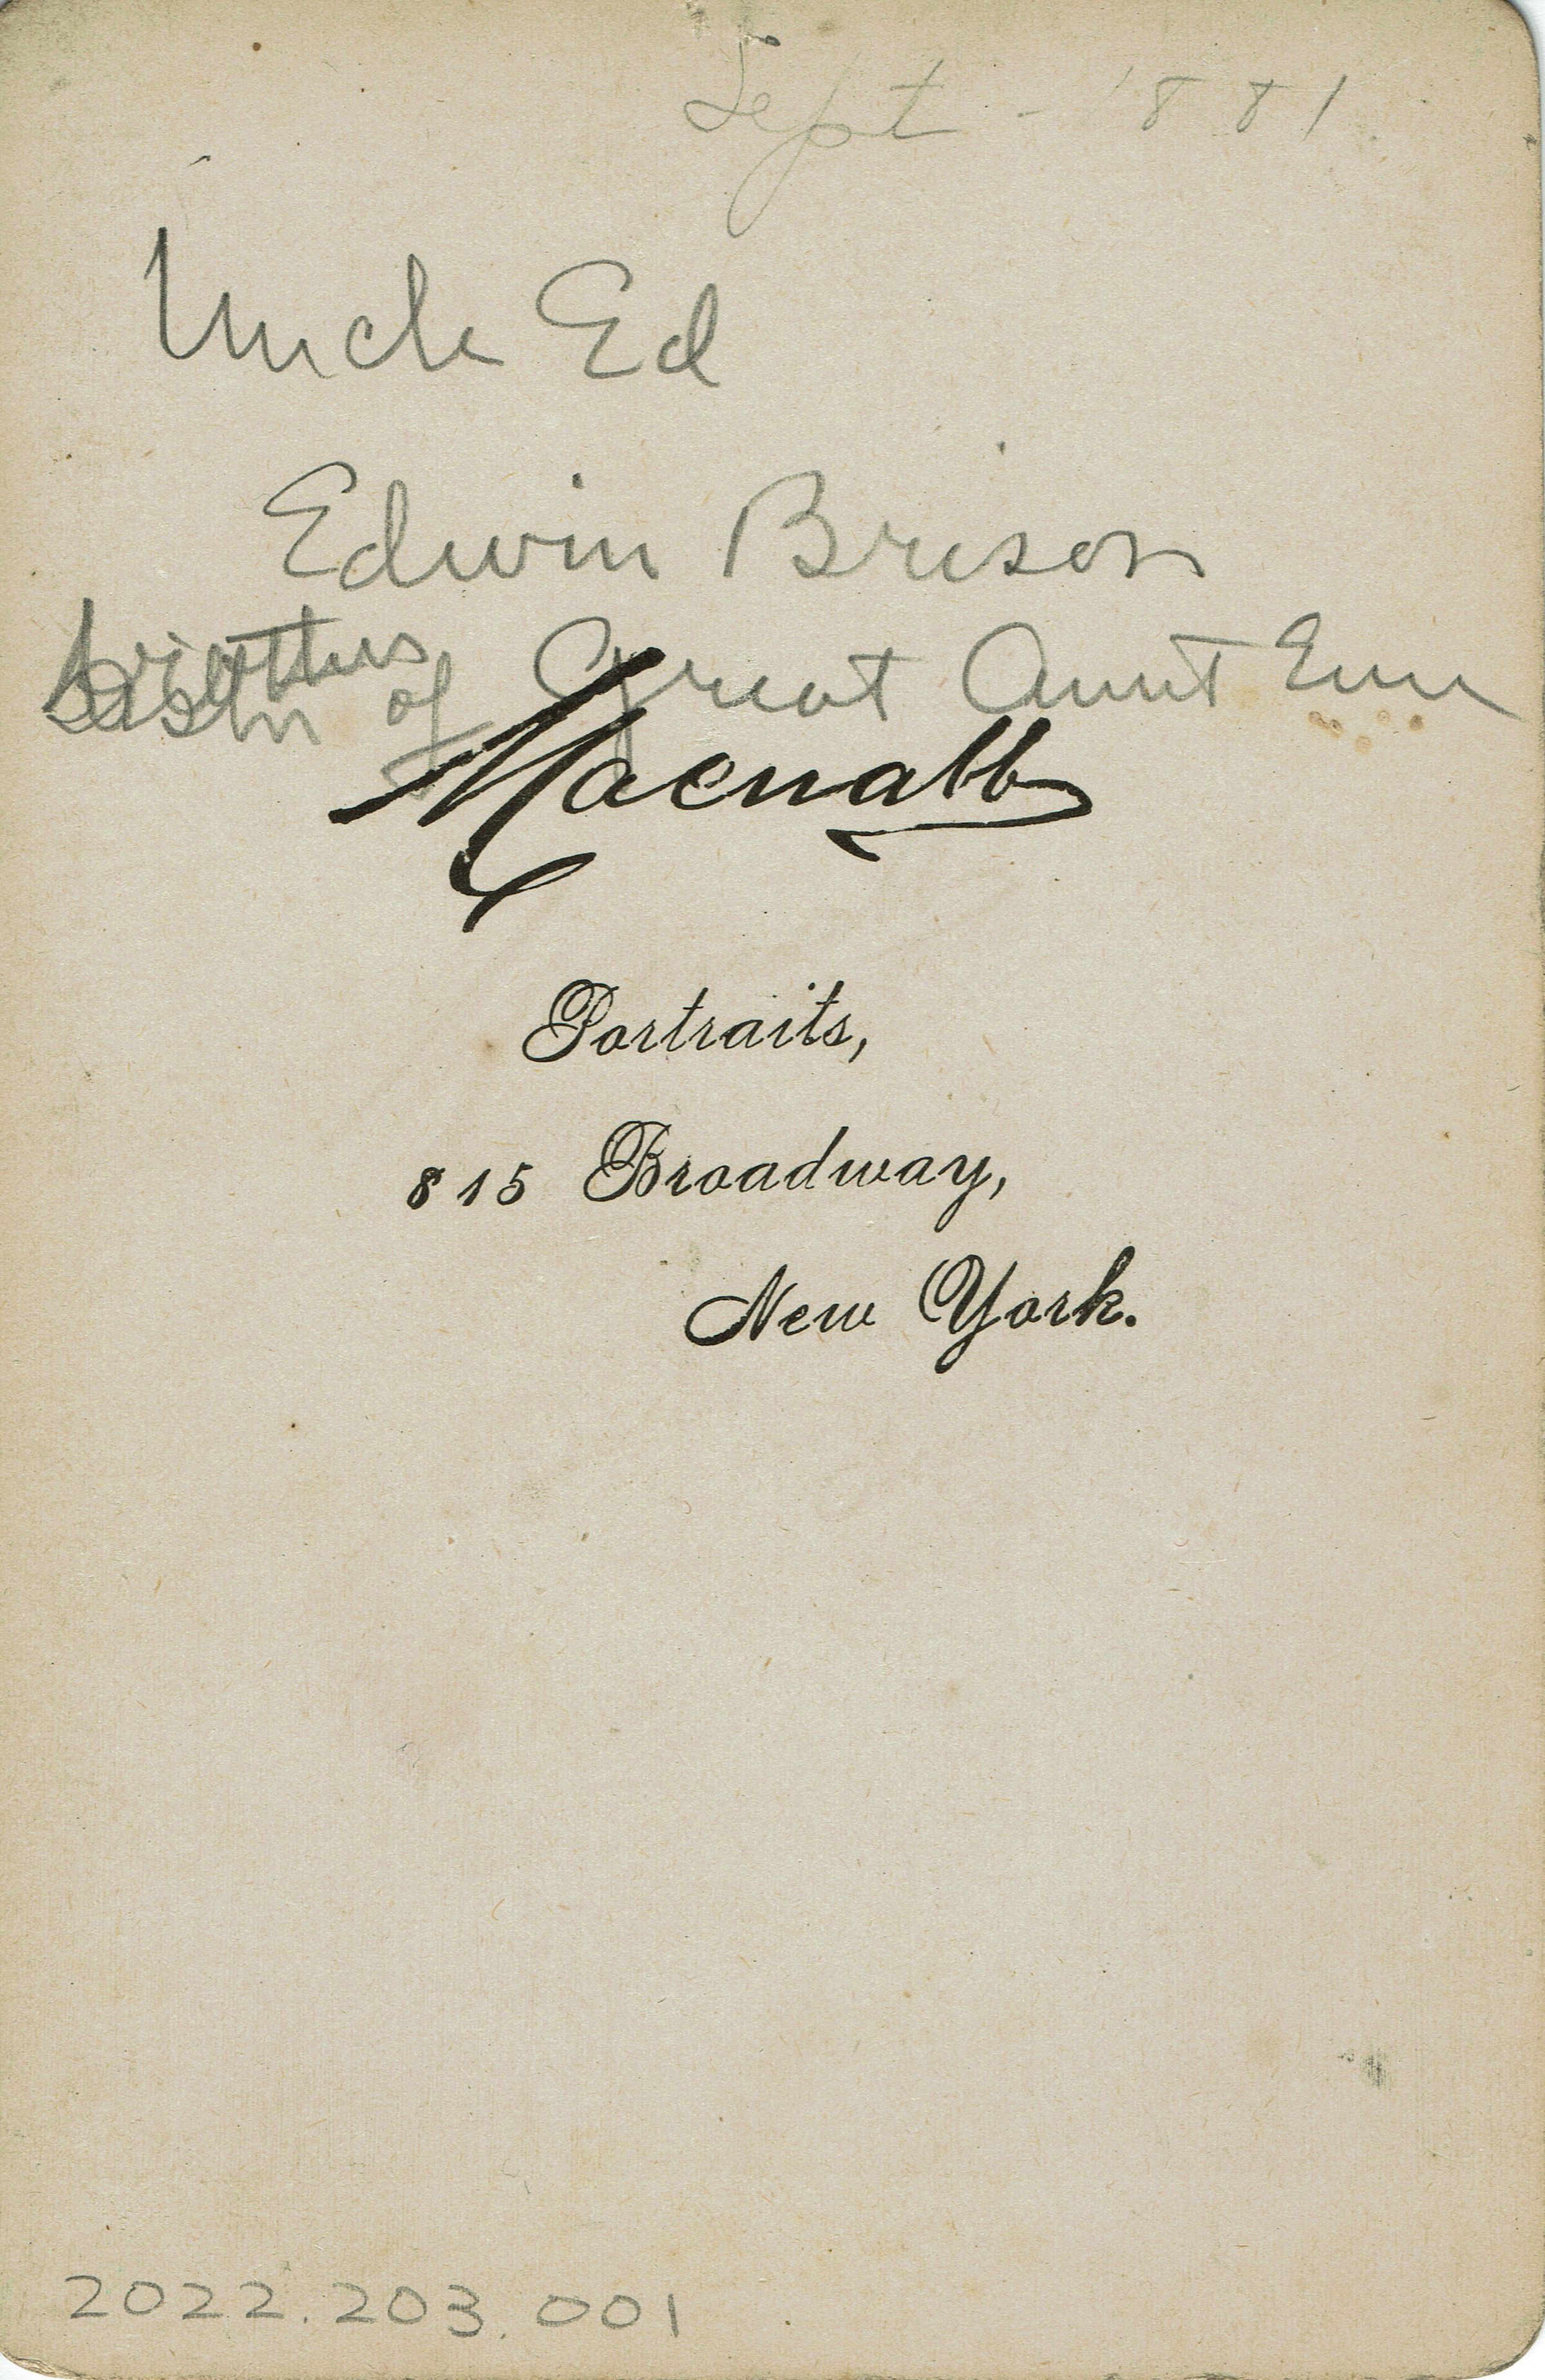 Sept - 1881
Uncle Ed
Edwin Brison
brother of Great Aunt Em
Macnabb
Portraits,
815 Broadway,
New York.
2022.203.001